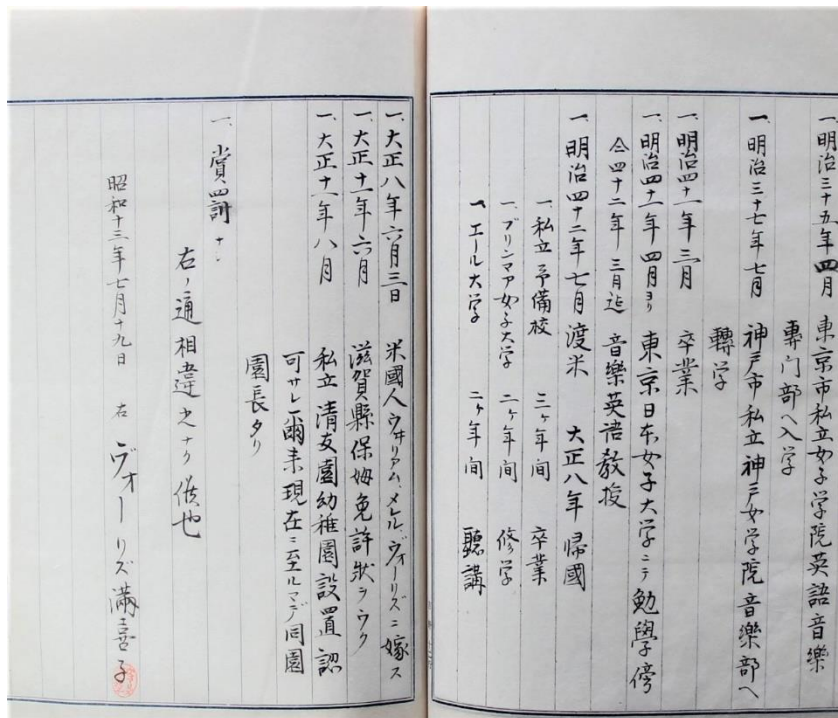 一、明治三十五年四月 東京市私立女子学院英語音樂
専门部へ入学
一、明治三十七年七月 神戸市私立神戸女学院音樂部へ
轉学
一、明治四十一年三月 卒業
一、明治四十一年四月ヨリ 東京日本女子大学ニテ勉學傍
仝四十二年三月迄 音樂英語教授
一、明治四十二年七月渡米 大正八年帰國
一、私立予備校 三ヶ年间 卒業
一、ブリンマア女子大学 二ヶ年间 修学
一、エール大学 二ヶ年间 聽講
一、大正八年六月三日 米國人ウヰリアム、メレル、ヴォーリズニ嫁ス
一、大正十一年六月 滋賀縣保姆免許狀ヲウク
一、大正十一年八月 私立清友園幼稚園設置認
可サレ爾来現在ニ至ルマデ同園
園長タリ
一、賞罰ナシ
右ノ通相違之ナク候也
昭和十三年七月十九日 右 ヴォーリズ満喜子